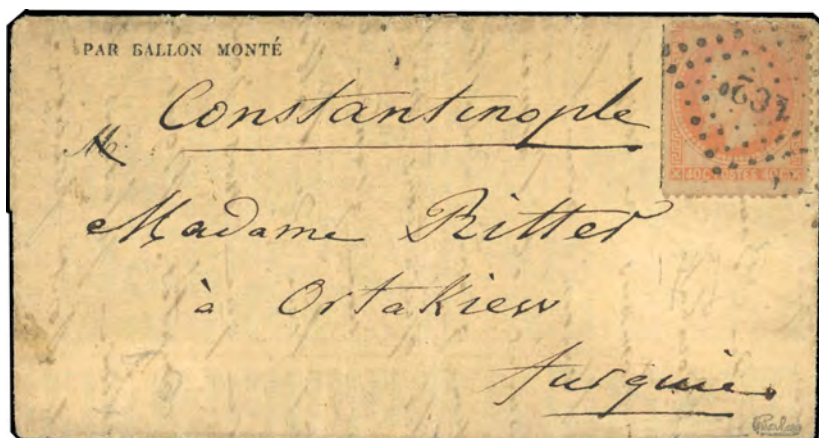 PAR BALLON MONTÉ
Constantinople
M
Madame Ritter
à Ortakiew
Turquie
40 C POSTES 40 C